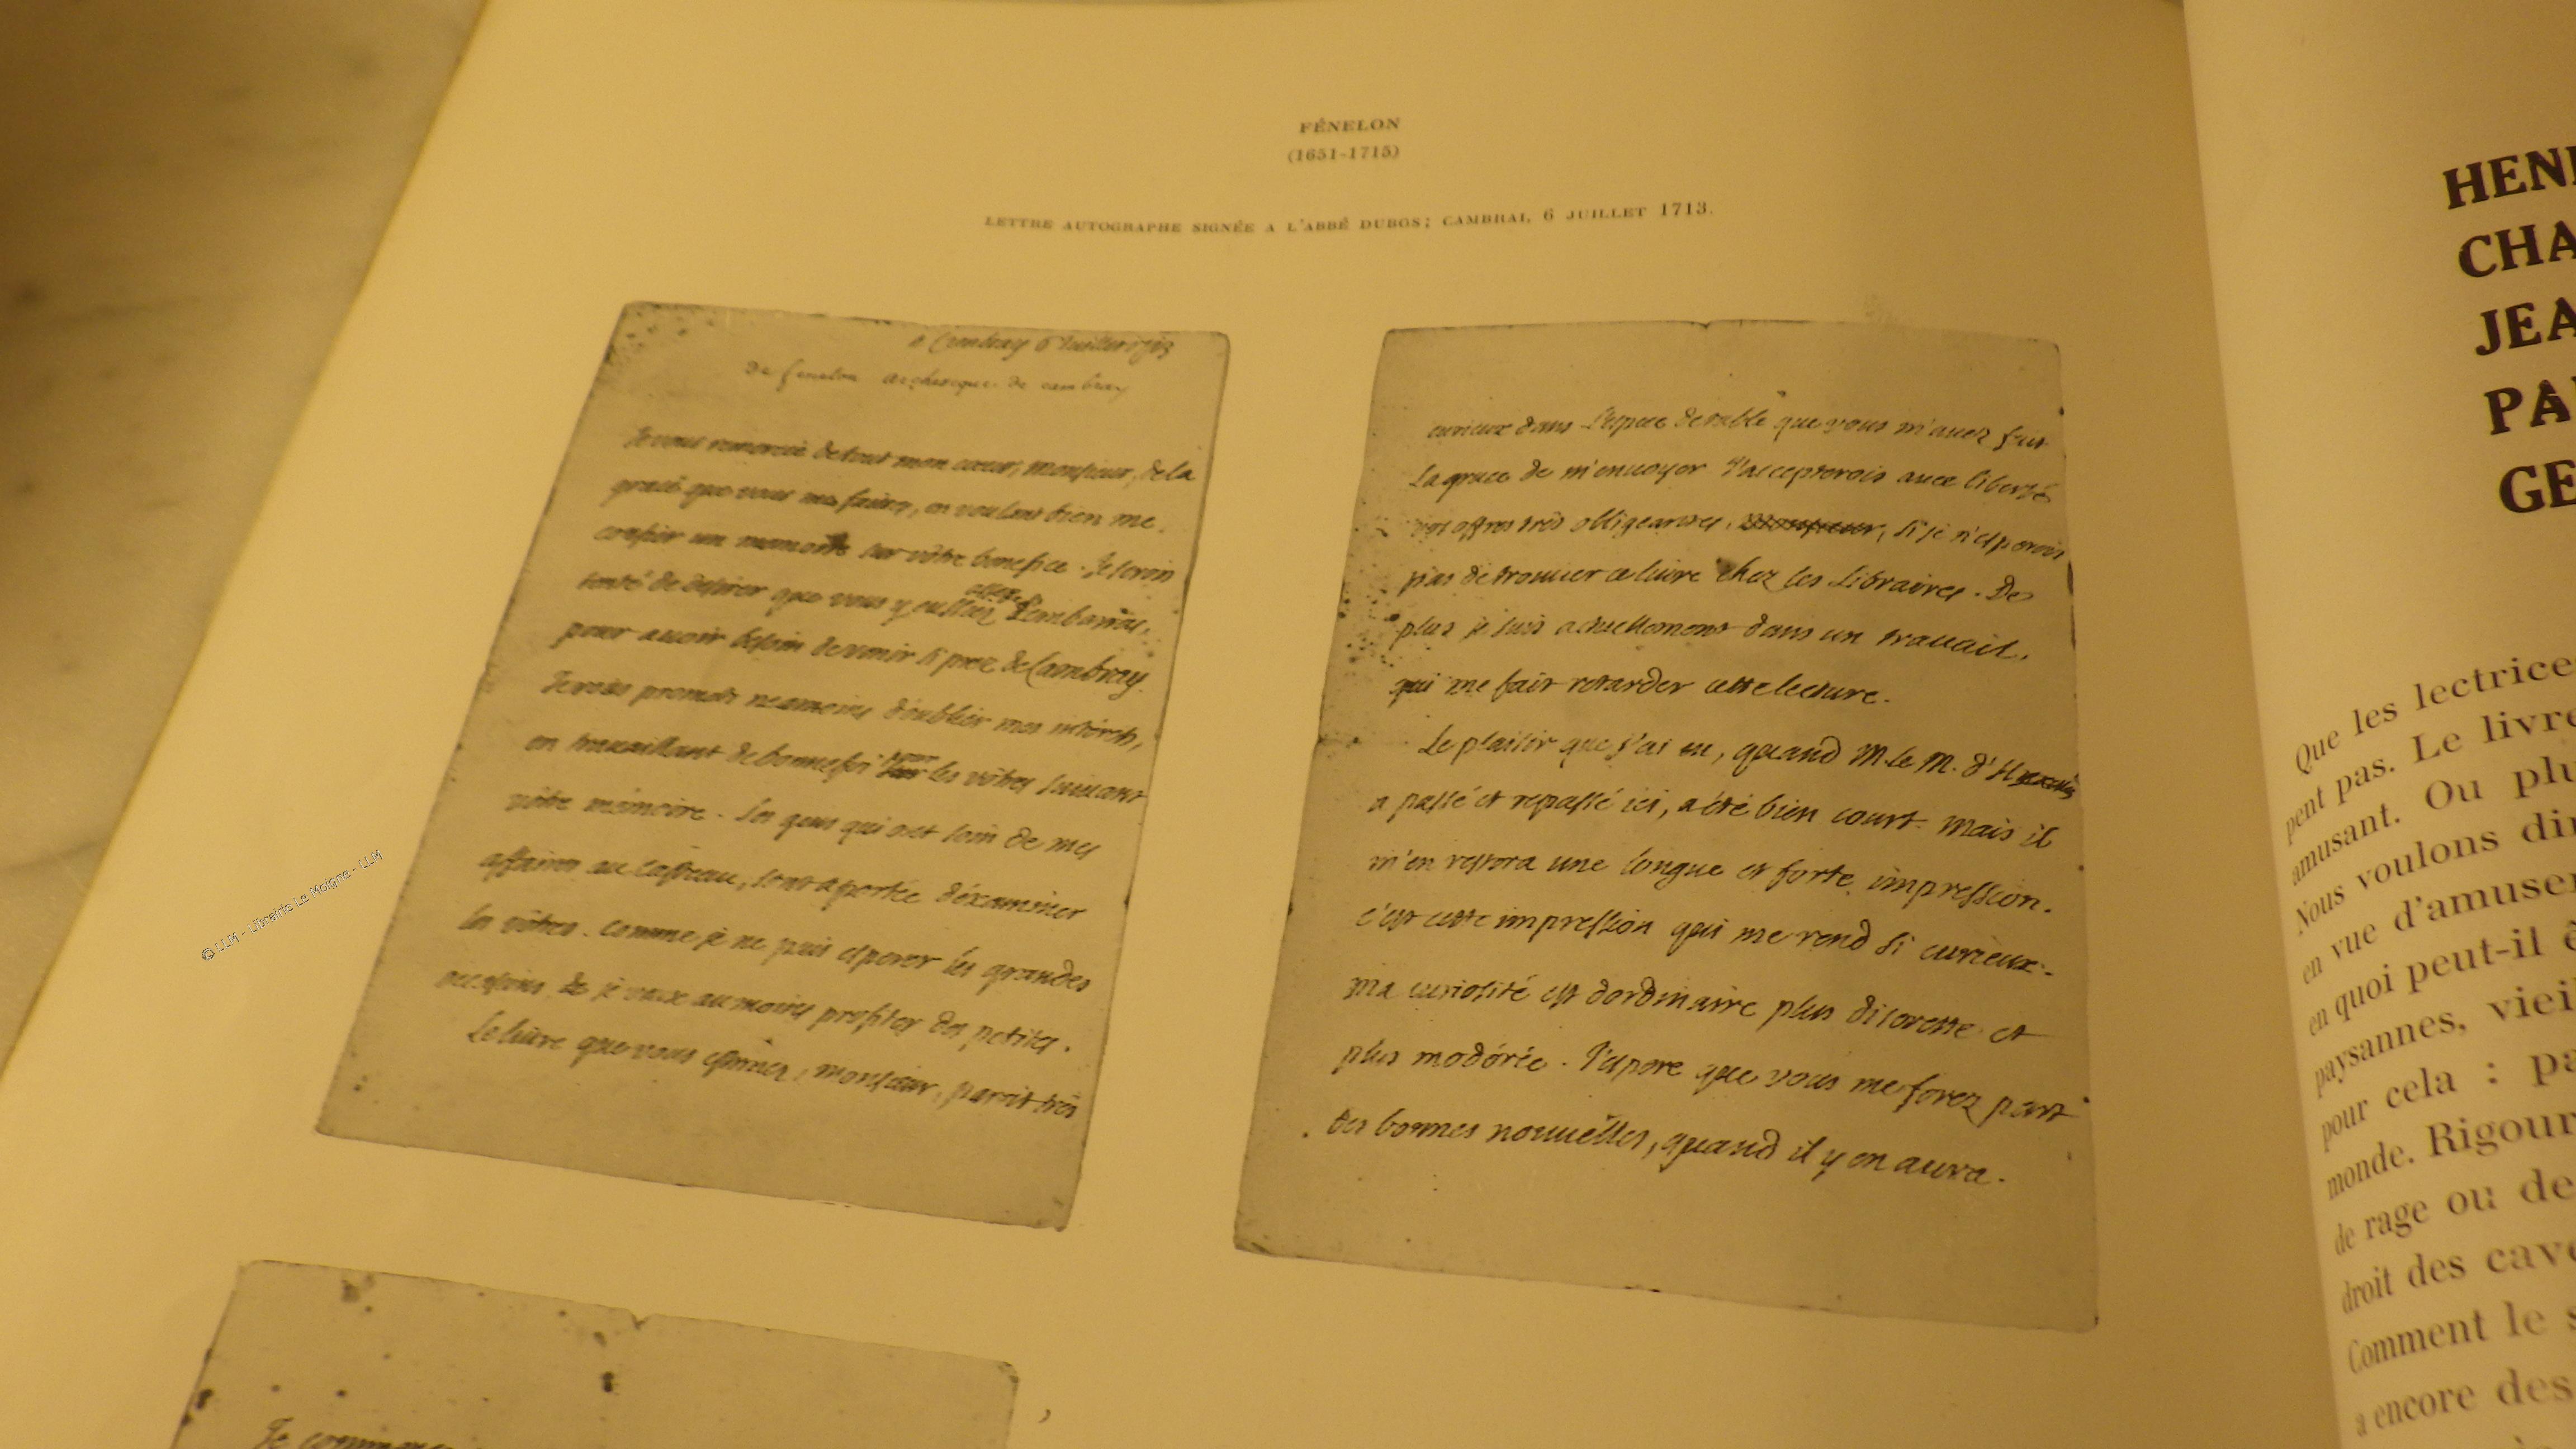 FÉNELON
(1651-1715)
LETTRE AUTOGRAPHE SIGNÉE A L'ABBÉ DUBOS; CAMBRAI, 6 JUILLET 1713.
a Cambray 6 Juillet 1713
De fenelon archeveque de cambray
Je vous remercie de tout mon cœur, monsieur, de la
grace que vous me faites, en voulant bien me
confier un memoire sur vôtre benefice. Je serois
tenté de desirer que vous y eussiez assez d'embarras,
pour avoir besoin de venir si prez de Cambray.
Je vous promets neanmoins d'oublier mes interets,
en travaillant de bonne foi pour les vôtres suivant
vôtre mémoire. Les gens qui ont soin de mes
affaires au Casteau, sont a portée d'examiner
les vôtres. comme je ne puis esperer les grandes
occasions je veux au moins profiter des petites.
Le livre que vous estimez, monsieur, paroit très
curieux dans l'espece de table que vous m'avez fait
La grace de m'envoyer J'accepterois avec liberté
vos offres très obligeantes, monsieur, si je n'esperois
pas de trouver ce livre chez les Libraires. De
plus je suis actuellement dans un travail,
qui me fait retarder cette lecture.
Le plaisir que j'ai eu, quand M. le M. d'Huxelles
a passé et repassé ici, a été bien court. mais il
m'en restera une longue et forte impression.
c'est cette impression qui me rend si curieux.
ma curiosité est dordinaire plus discrette et
plus modérée. J'espere que vous me ferez part
des bonnes nouvelles, quand il y en aura.
Je
© LLM - Librairie Le Moigne - LLM
HEN
CHA
JEA
PA
GE
Que les lectrice
pent pas. Le livre
amusant. Ou plu
Nous voulons di
en vue d'amuser
en quoi peut-il ê
paysannes, vieil
pour cela : pa
monde. Rigour
de rage ou de
droit des cave
Comment le s
a encore des